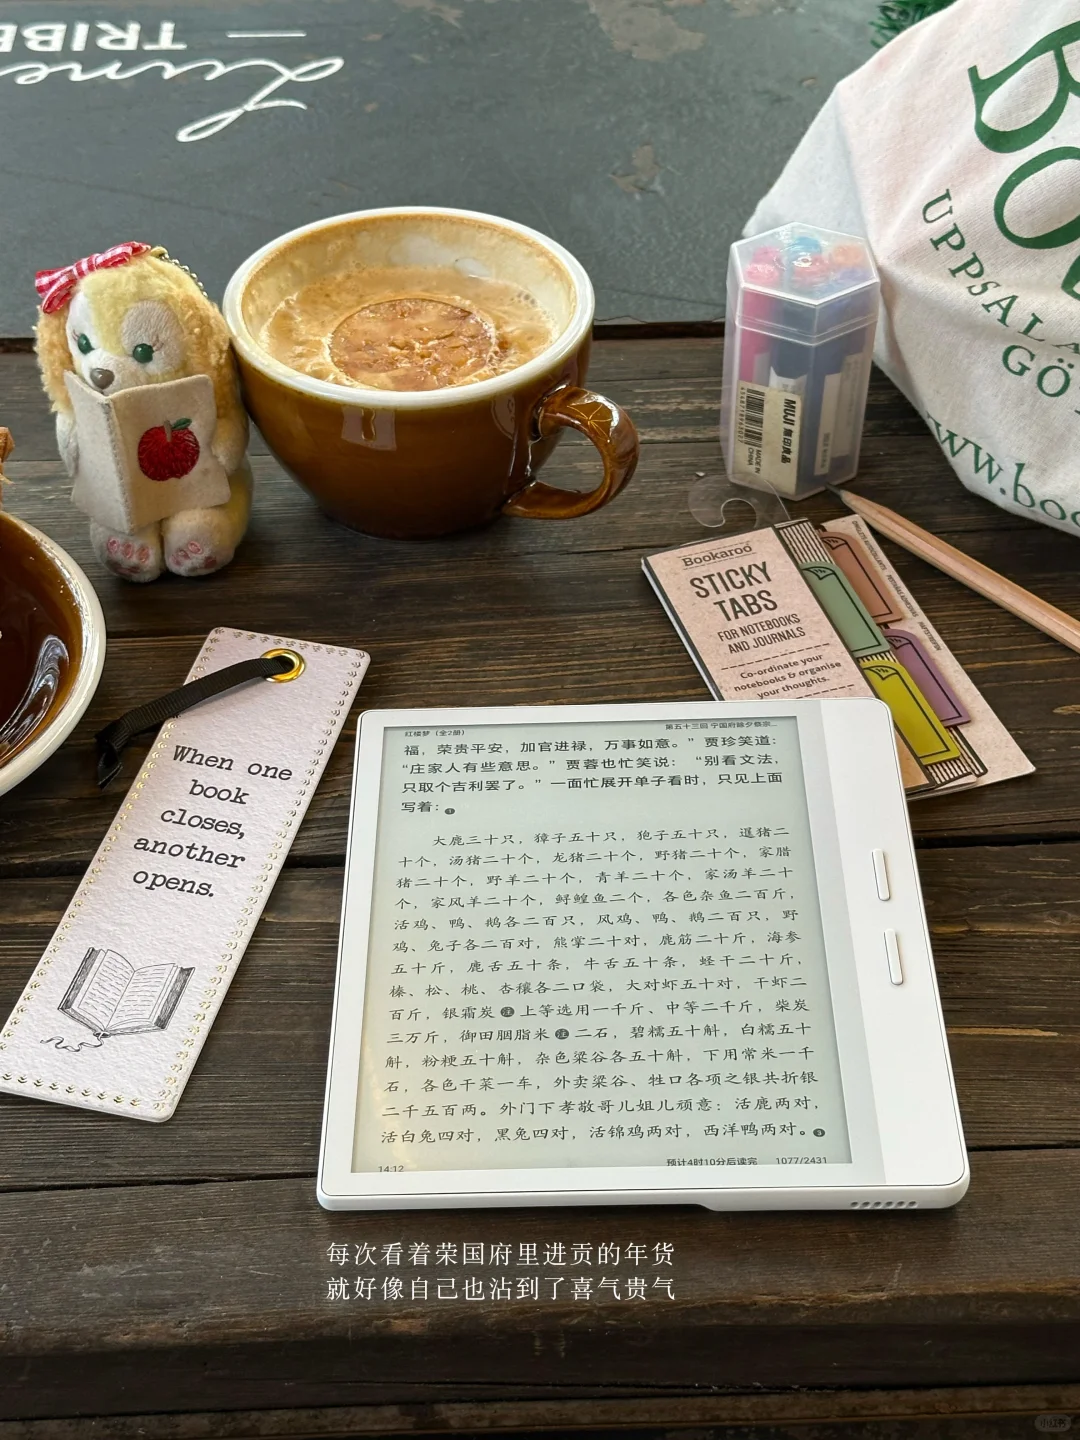 TRIBE
Lume
BO
UPPSALA
GÖ
www.boo
MUJI 無印良品
MADE IN CHINA
Bookaroo
STICKY
TABS
FOR NOTEBOOKS
AND JOURNALS
Co-ordinate your
notebooks & organise
your thoughts.
When one
book
closes,
another
opens.
红楼梦(全2册)
第五十三回 宁国府除夕祭宗...
福,荣贵平安,加官进禄,万事如意。”贾珍笑道:
“庄家人有些意思。”贾蓉也忙笑说:“别看文法,
只取个吉利罢了。”一面忙展开单子看时,只见上面
写着:
大鹿三十只,獐子五十只,狍子五十只,暹猪二
十个,汤猪二十个,龙猪二十个,野猪二十个,家腊
猪二十个,野羊二十个,青羊二十个,家汤羊二十
个,家风羊二十个,鲟鳇鱼二个,各色杂鱼二百斤,
活鸡、鸭、鹅各二百只,风鸡、鸭、鹅二百只,野
鸡、兔子各二百对,熊掌二十对,鹿筋二十斤,海参
五十斤,鹿舌五十条,牛舌五十条,蛏干二十斤,
榛、松、桃、杏穰各二口袋,大对虾五十对,干虾二
百斤,银霜炭注上等选用一千斤、中等二千斤,柴炭
三万斤,御田胭脂米注二石,碧糯五十斛,白糯五十
斛,粉粳五十斛,杂色粱谷各五十斛,下用常米一千
石,各色干菜一车,外卖粱谷、牲口各项之银共折银
二千五百两。外门下孝敬哥儿姐儿顽意:活鹿两对,
活白兔四对,黑兔四对,活锦鸡两对,西洋鸭两对。3
14:12
预计4时10分后读完 1077/2431
每次看着荣国府里进贡的年货
就好像自己也沾到了喜气贵气
小红书